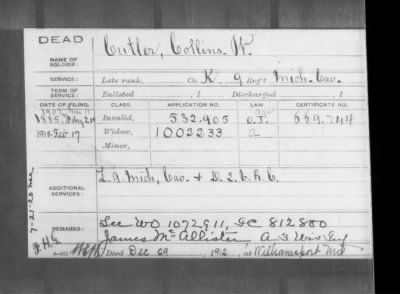 DEAD
NAME OF SOLDIER:
Cutler, Collins W.
SERVICE:
Late rank, Co. K, 9 Reg't Mich. Cav.
TERM OF SERVICE:
Enlisted , 1 Discharged , 1
DATE OF FILING. CLASS. APPLICATION NO. LAW. CERTIFICATE NO.
1885, Invalid, 532,905 O.L. 669,744
1913 Feb 17 Widow, 1002233 a
Minor,
ADDITIONAL SERVICES:
L. 9 Mich, Cav. &
REMARKS:
See WO 1072911, 812880
James McAllister Wis Inf
Died Dec 29, 1912, at Williamsport
7-21-20